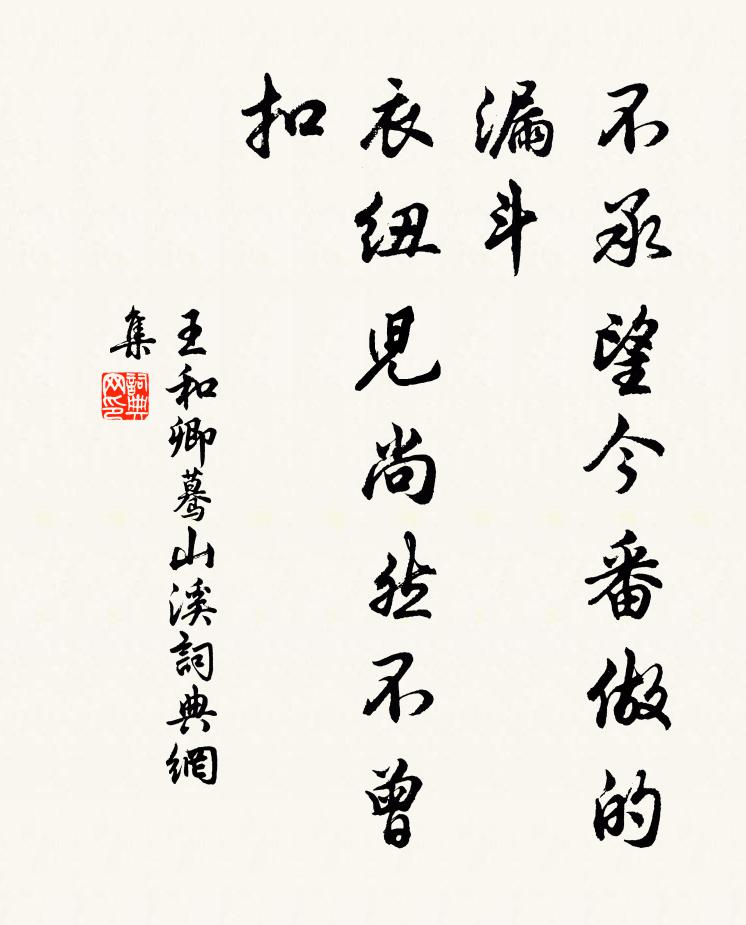 不承望今番做的
漏斗
衣纽児尚然不曾
扣
王和卿蓦山溪詞典網
集
詞典
网印